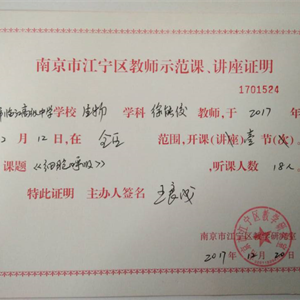 南京市江宁区教师示范课、讲座证明
1701524
高级中学学校 生物 学科 徐德俊 教师,于 2017 年
12月 12 日,在 全区 范围,开课(讲座) 壹 节(次)
课题《细胞呼吸》,听课人数 18人
特此证明 主办人签名
南京市江宁区教学研究室
2017年 12月 20日